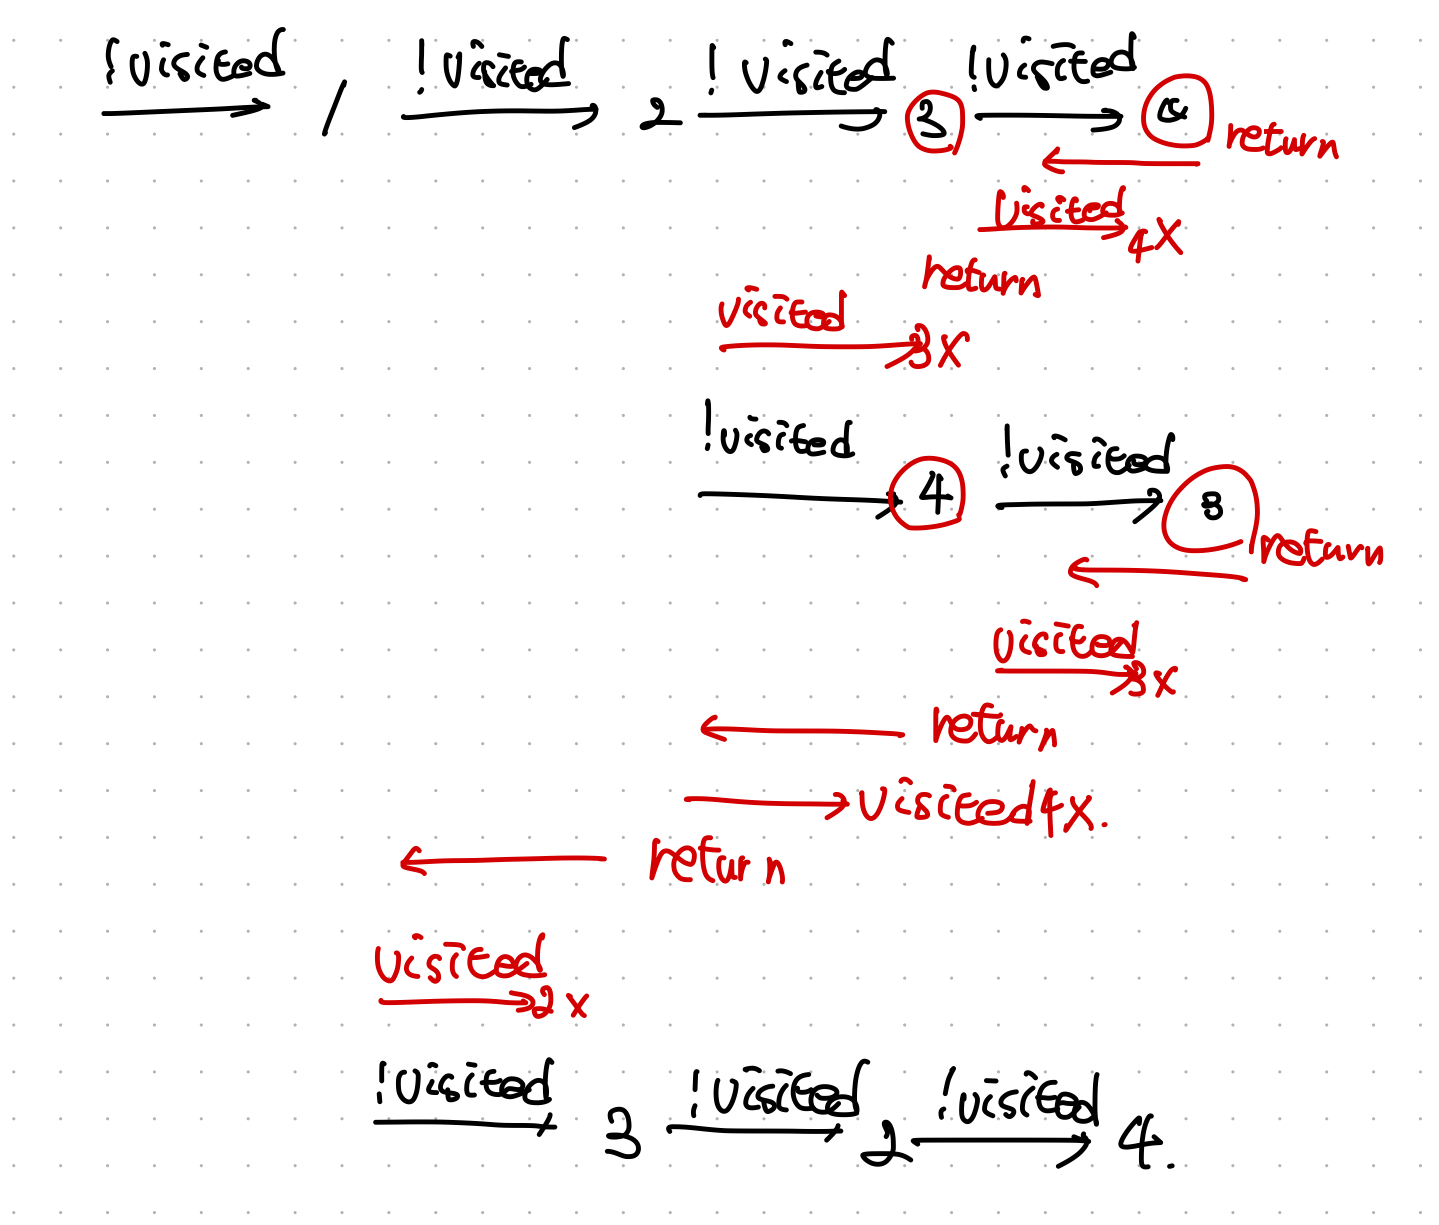 !visited !visited !visited !visited
1 2 3 4 return
visited
4X
return
visited
3X
!visited !visited
4 3 return
visited
3X
return
visited 4X.
return
visited
2X
!visited !visited !visited
3 2 4.